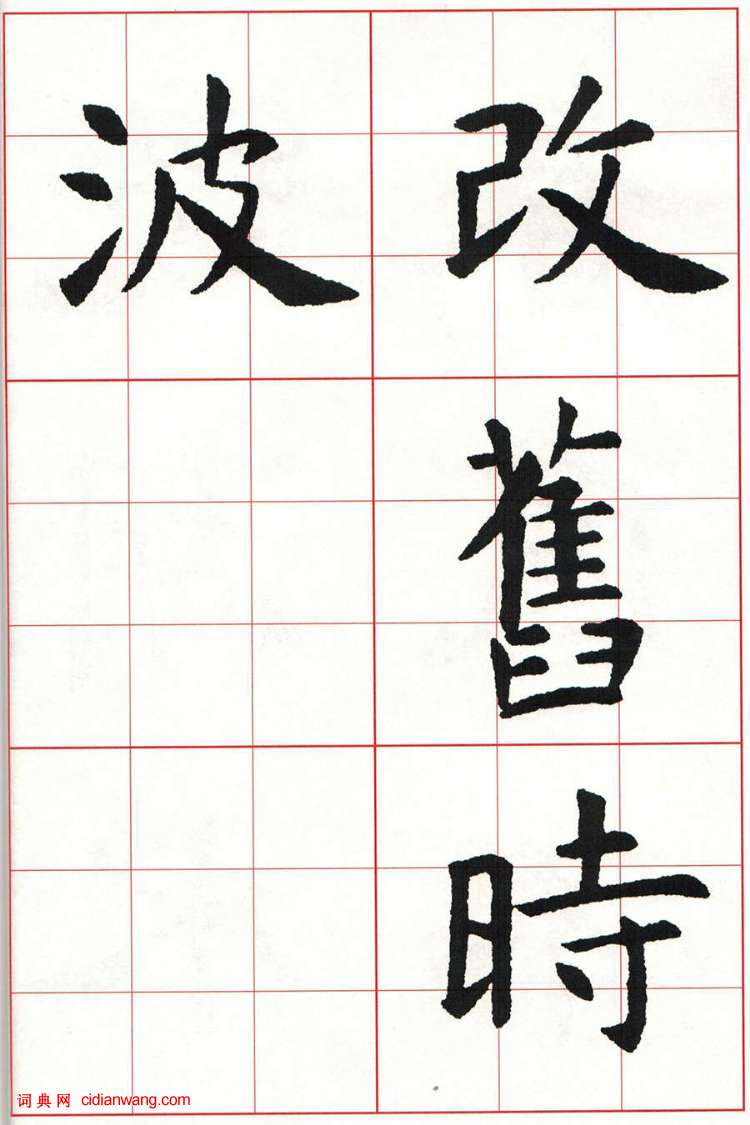 改舊時
波
词典网 cidianwang.com